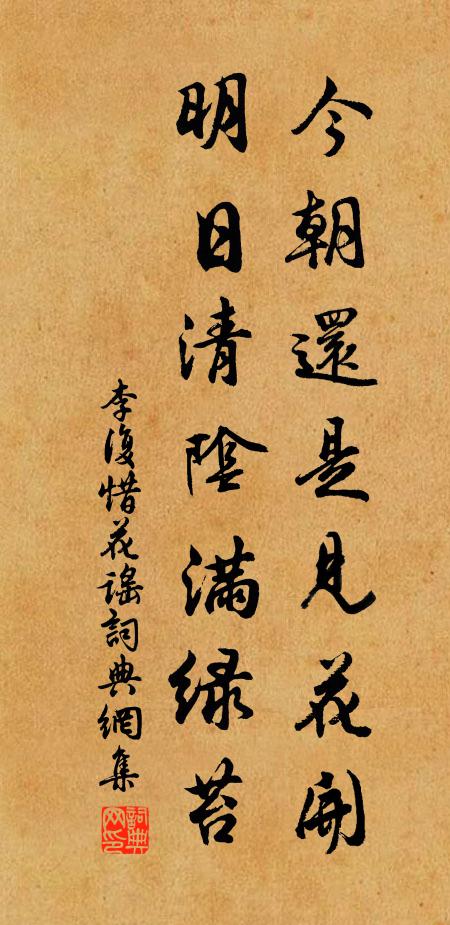 今朝還是見花開
明日清陰滿緑苔
李復惜花謠詞典網集
詞典网印